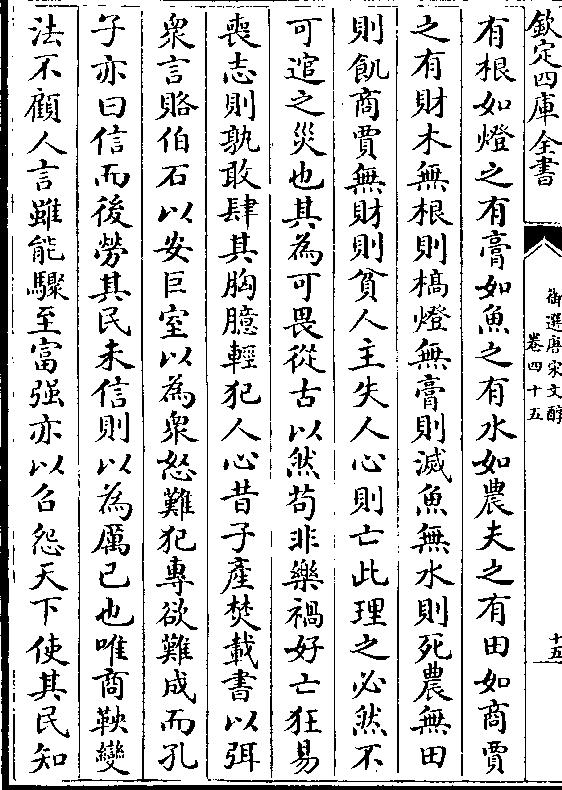 欽定四庫全書
御選唐宋文醇
卷四十五
十五
有根如燈之有膏如魚之有水如農夫之有田如商賈
之有財木無根則槁燈無膏則滅魚無水則死農無田
則飢商賈無財則貧人主失人心則亡此理之必然不
可逭之災也其為可畏從古以然茍非樂禍好亡狂易
喪志則孰敢肆其胸臆輕犯人心昔子產焚載書以弭
衆言賂伯石以安巨室以為衆怒難犯專欲難成而孔
子亦曰信而後勞其民未信則以為厲己也唯商鞅變
法不顧人言雖能驟至富强亦以召怨天下使其民知